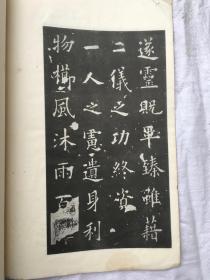 遂靈貺畢臻雖藉
二儀之功終資
一人之慮遺身利
物櫛風沐雨百